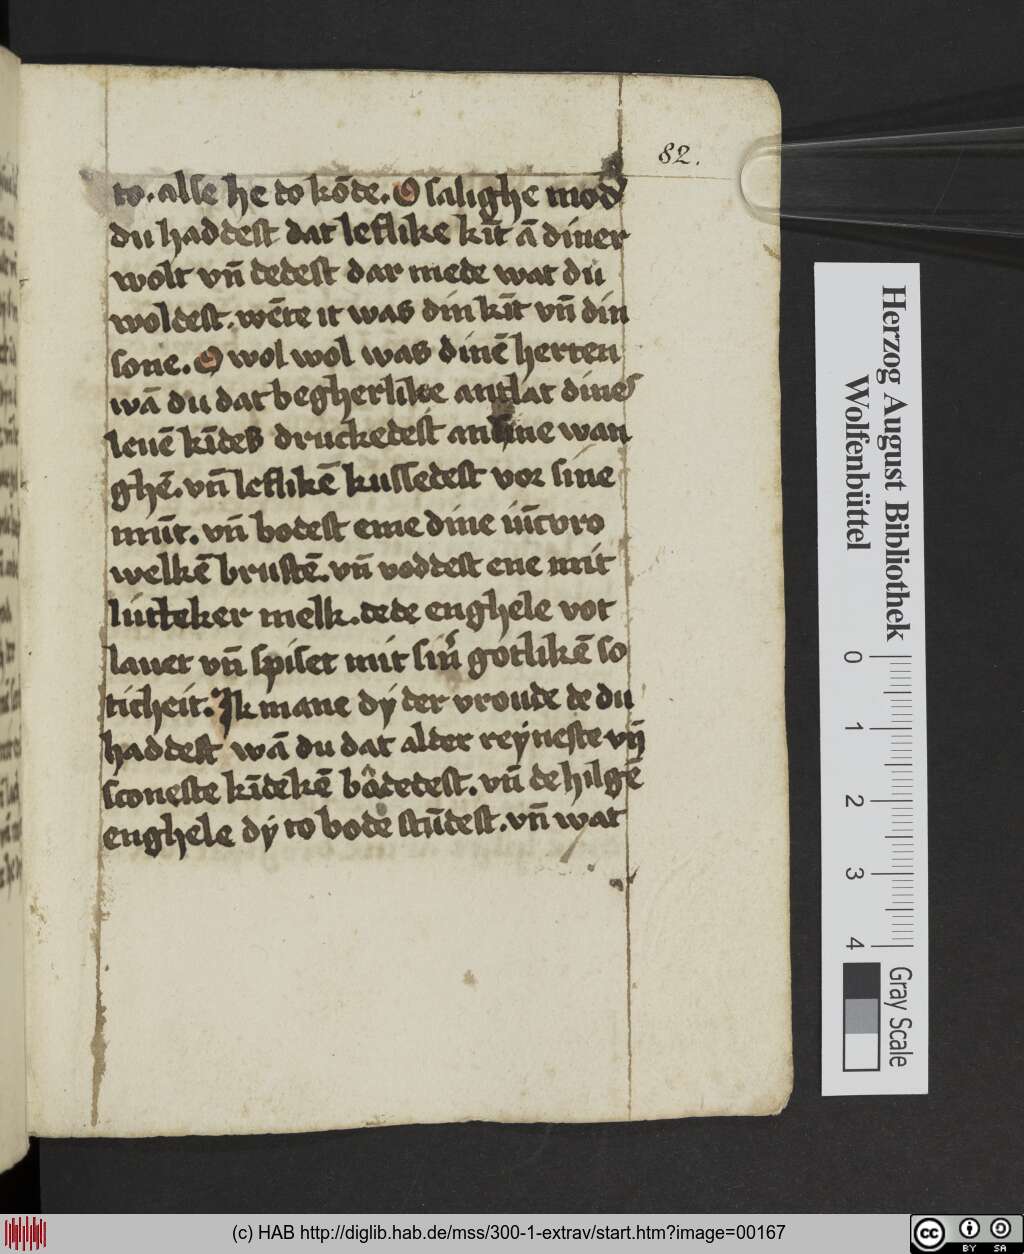 82.
to. alse he to kōde. O salighe mod'
du haddest dat leflike kīt ā diner
wolt vn̄ dedest dar mede wat du
woldest. wēte it was din kīt vn̄ din
sone. O wol wol was dinē herten
wā du dat begherlike antlat dines
leuē kīdes druckedest an dine wan
ghē. vn̄ leflikē kussedest vor sine
mūt. vn̄ bodest eme dine iūcvro
welkē brustē. vn̄ voddest ene mit
lutteker melk. dede enghele vot
lauet vn̄ spiset mit sin' gotlikē so
ticheit. Ik mane dy der vroude de du
haddest wā du dat alder reyneste vn̄
sconeste kīdekē bādedest. vn̄ de hilgē
enghele dy to bode stūdest. vn̄ wat
Herzog August Bibliothek
Wolfenbüttel
0 1 2 3 4
Gray Scale
(c) HAB http://diglib.hab.de/mss/300-1-extrav/start.htm?image=00167
cc BY SA